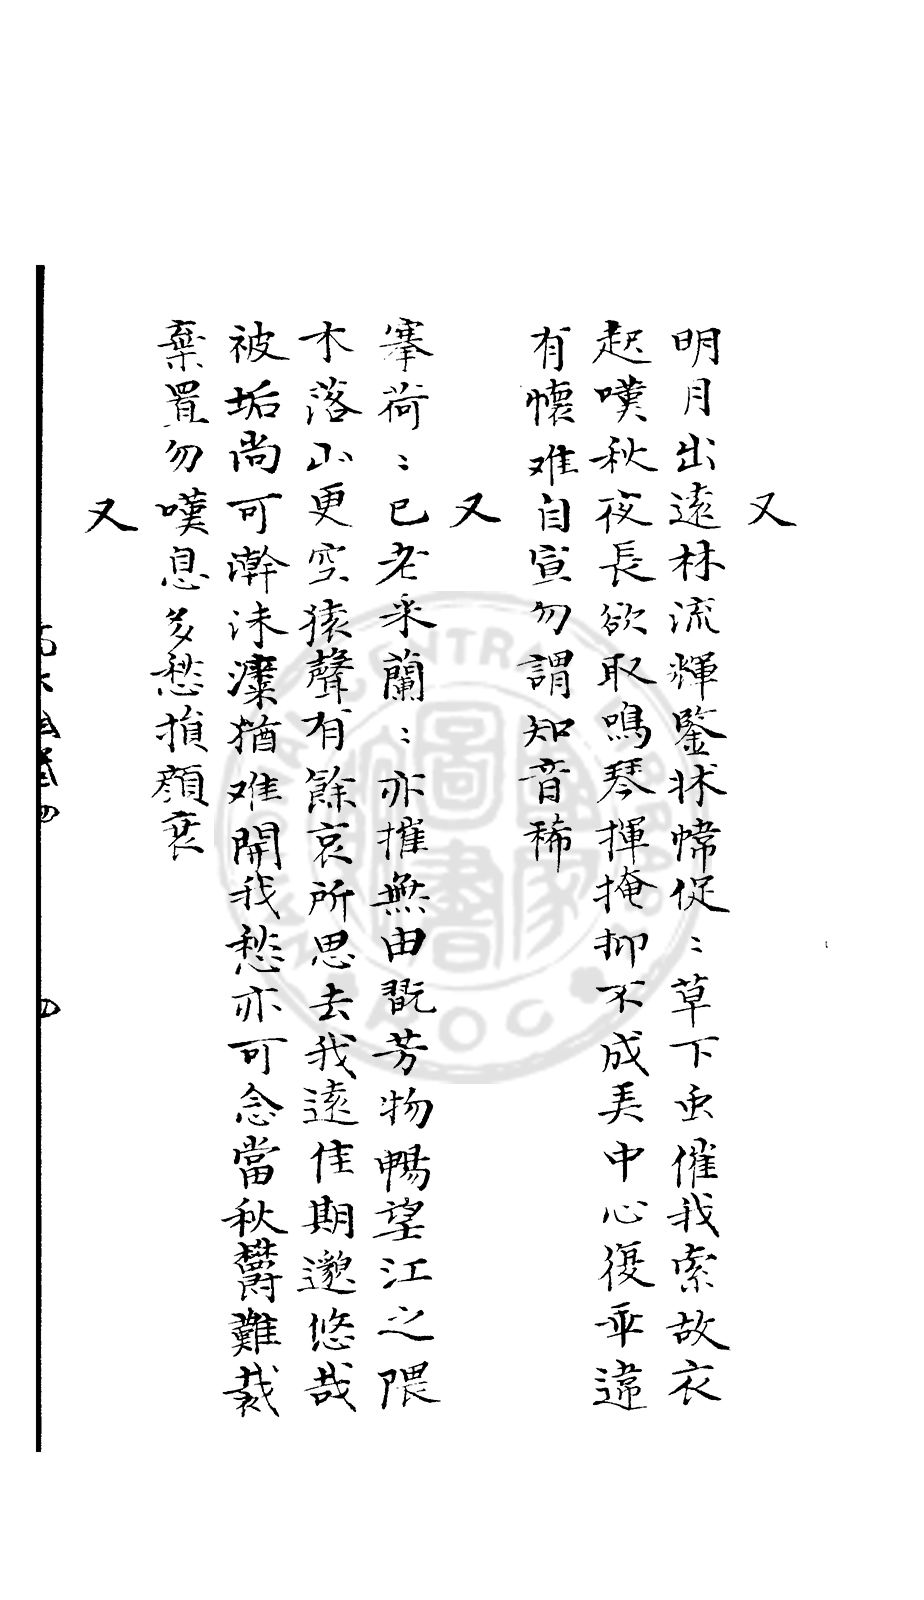 又
明月出遠林流輝鑒牀幃促〻草下虫催我索故衣
起嘆秋夜長欲取鳴琴揮掩抑不成美中心復乖違
有懷难自宣勿謂知音稀
又
搴荷〻已老采蘭〻亦摧無由翫芳物暢望江之隈
木落山更空猿聲有餘哀所思去我遠佳期邈悠哉
被垢尚可澣沬濂猶难開我愁亦可念當秋欝難裁
棄置勿嘆息多愁損顏衰
又